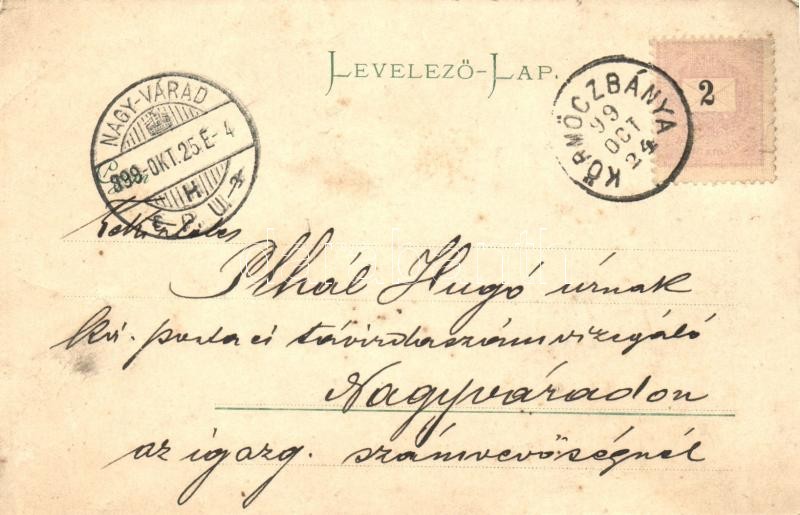 LEVELEZŐ-LAP.
2
KÖRMÖCZBÁNYA
99
OCT
24
NAGY-VÁRAD
899-OKT.25.É-4
H
Tekintetes
Plhál Hugó úrnak
kir. posta és távirdaszámvizsgáló
Nagyváradon
az igazg. számvevőségnél